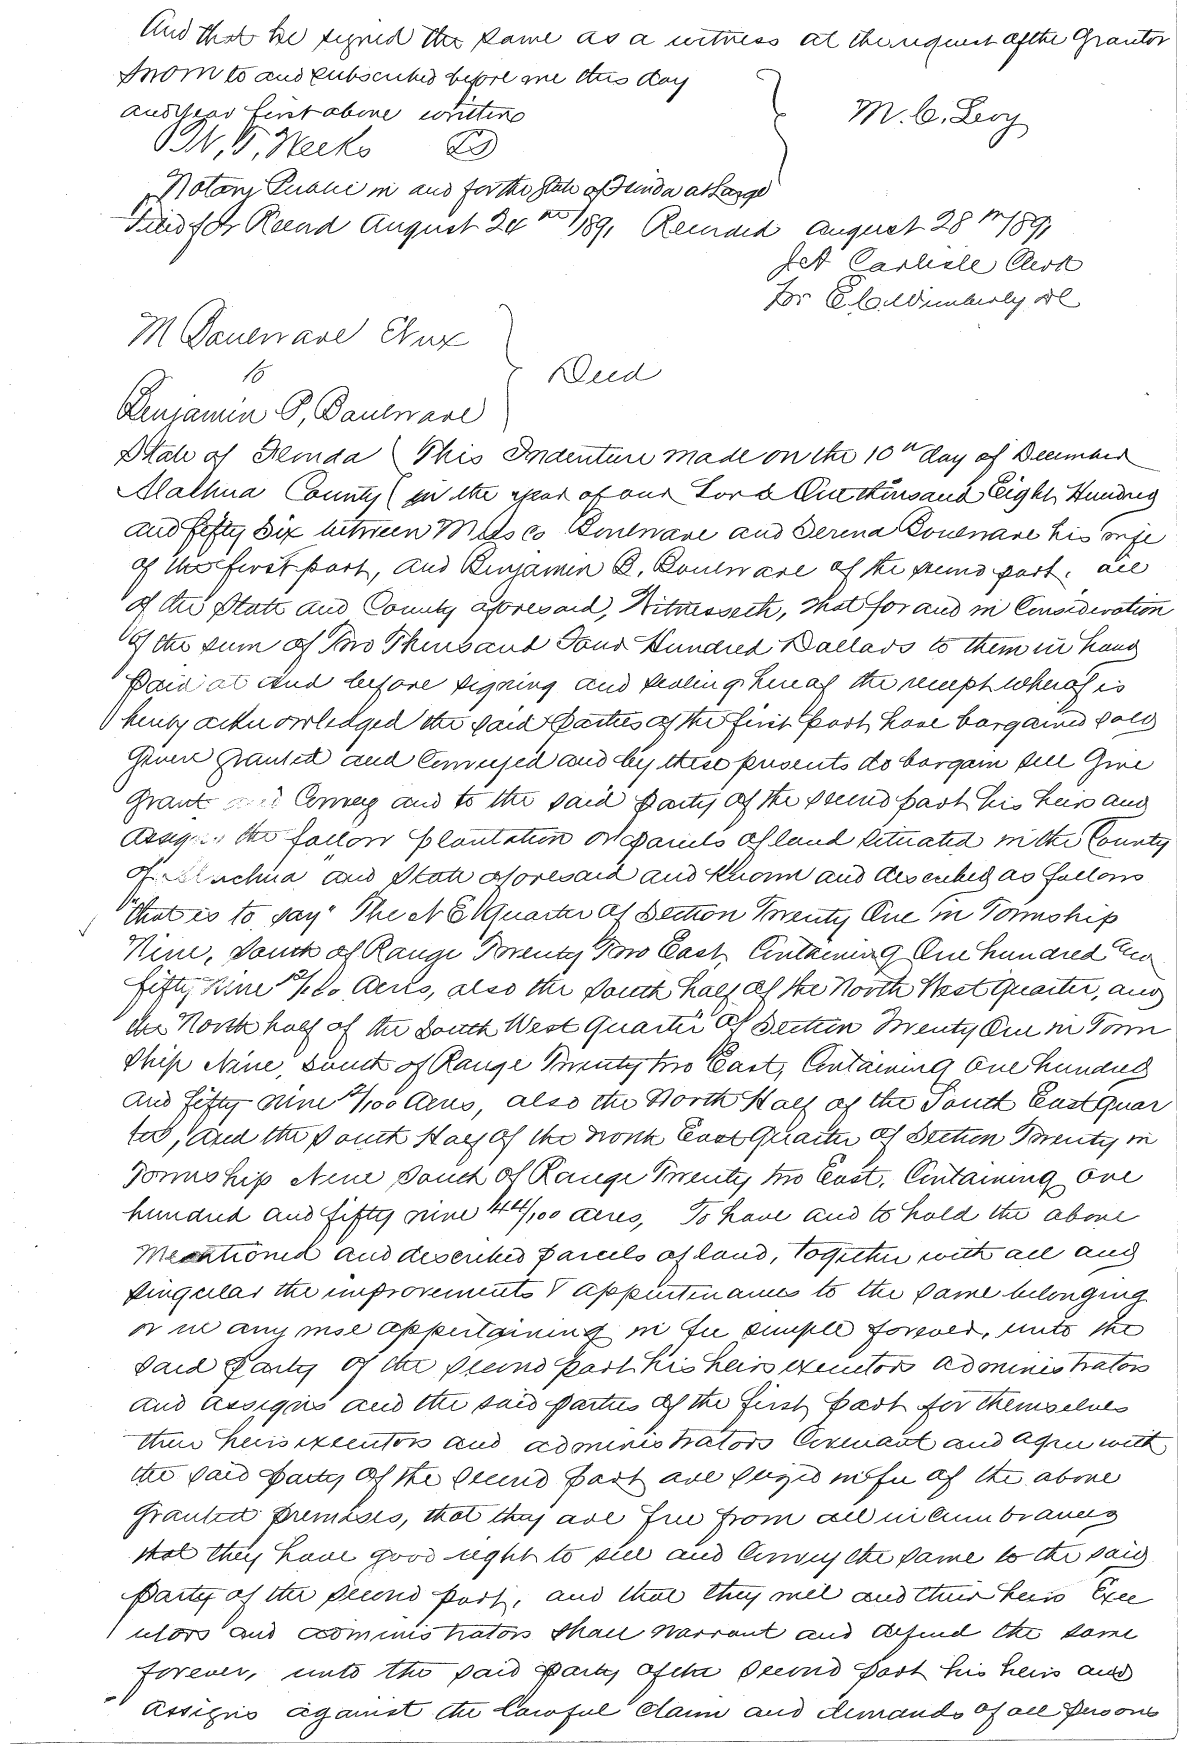 And that he signed the same as a witness at the request of the Grantor
Sworn to and subscribed before me this day
and year first above written
M. C. Levy
W. T. Weeks
Notary Public in and for the State of Florida at Large
Filed for Record August 24th 1891 Recorded August 28th 1891
Carlisle Clerk
for E. C. Wimberly DC
M Boulware Et ux
to
Deed
Benjamin P, Boulware
State of Florida ( This Indenture made on the 10th day of December
Alachua County ( in the year of our Lord One thousand Eight Hundred
and fifty Six between Boulware and Serena Boulware his wife
of the first part, and Benjamin B. Boulware of the second part, all
of the State and County aforesaid, Witnesseth, that for and in Consideration
of the sum of Two Thousand Four Hundred Dollars to them in hand
paid at and before signing and sealing hereof the receipt whereof is
hereby acknowledged the said parties of the first part have bargained sold
given granted and Conveyed and by these presents do bargain sell Give
Grant and Convey and to the said party of the second part his heirs and
assigns the follow plantation or parcels of land situated in the County
of Alachua and State aforesaid and known and described as follows
"that is to say" The N E Quarter of Section Twenty One in Township
Nine, South of Range Twenty Two East, Containing One hundred and
fifty Nine /100 Acres, also the South half of the North West Quarter, and
the North half of the South West Quarter of Section Twenty One in Town
ship Nine, South of Range Twenty two East, Containing one hundred
and fifty nine /100 Acres, also the North Half of the South East Quar
ter, and the South Half of the North East Quarter of Section Twenty in
Township Nine South of Range Twenty two East, Containing one
hundred and fifty nine 44/100 acres, To have and to hold the above
Mentioned and described parcels of land, together with all and
singular the improvements & appurtenances to the same belonging
or in any wise appertaining in fee simple forever, unto the
said party of the second part his heirs executors administrators
and assigns and the said parties of the first part for themselves
their heirs executors and administrators Covenant and agree with
the said party of the second part are seized in fee of the above
granted premises, that they are free from all incumbrances
that they have good right to sell and Convey the same to the said
party of the second part, and that they will and their heirs Exec
utors and administrators shall warrant and defend the same
forever, unto the said party of the second part his heirs and
assigns against the lawful claim and demands of all persons